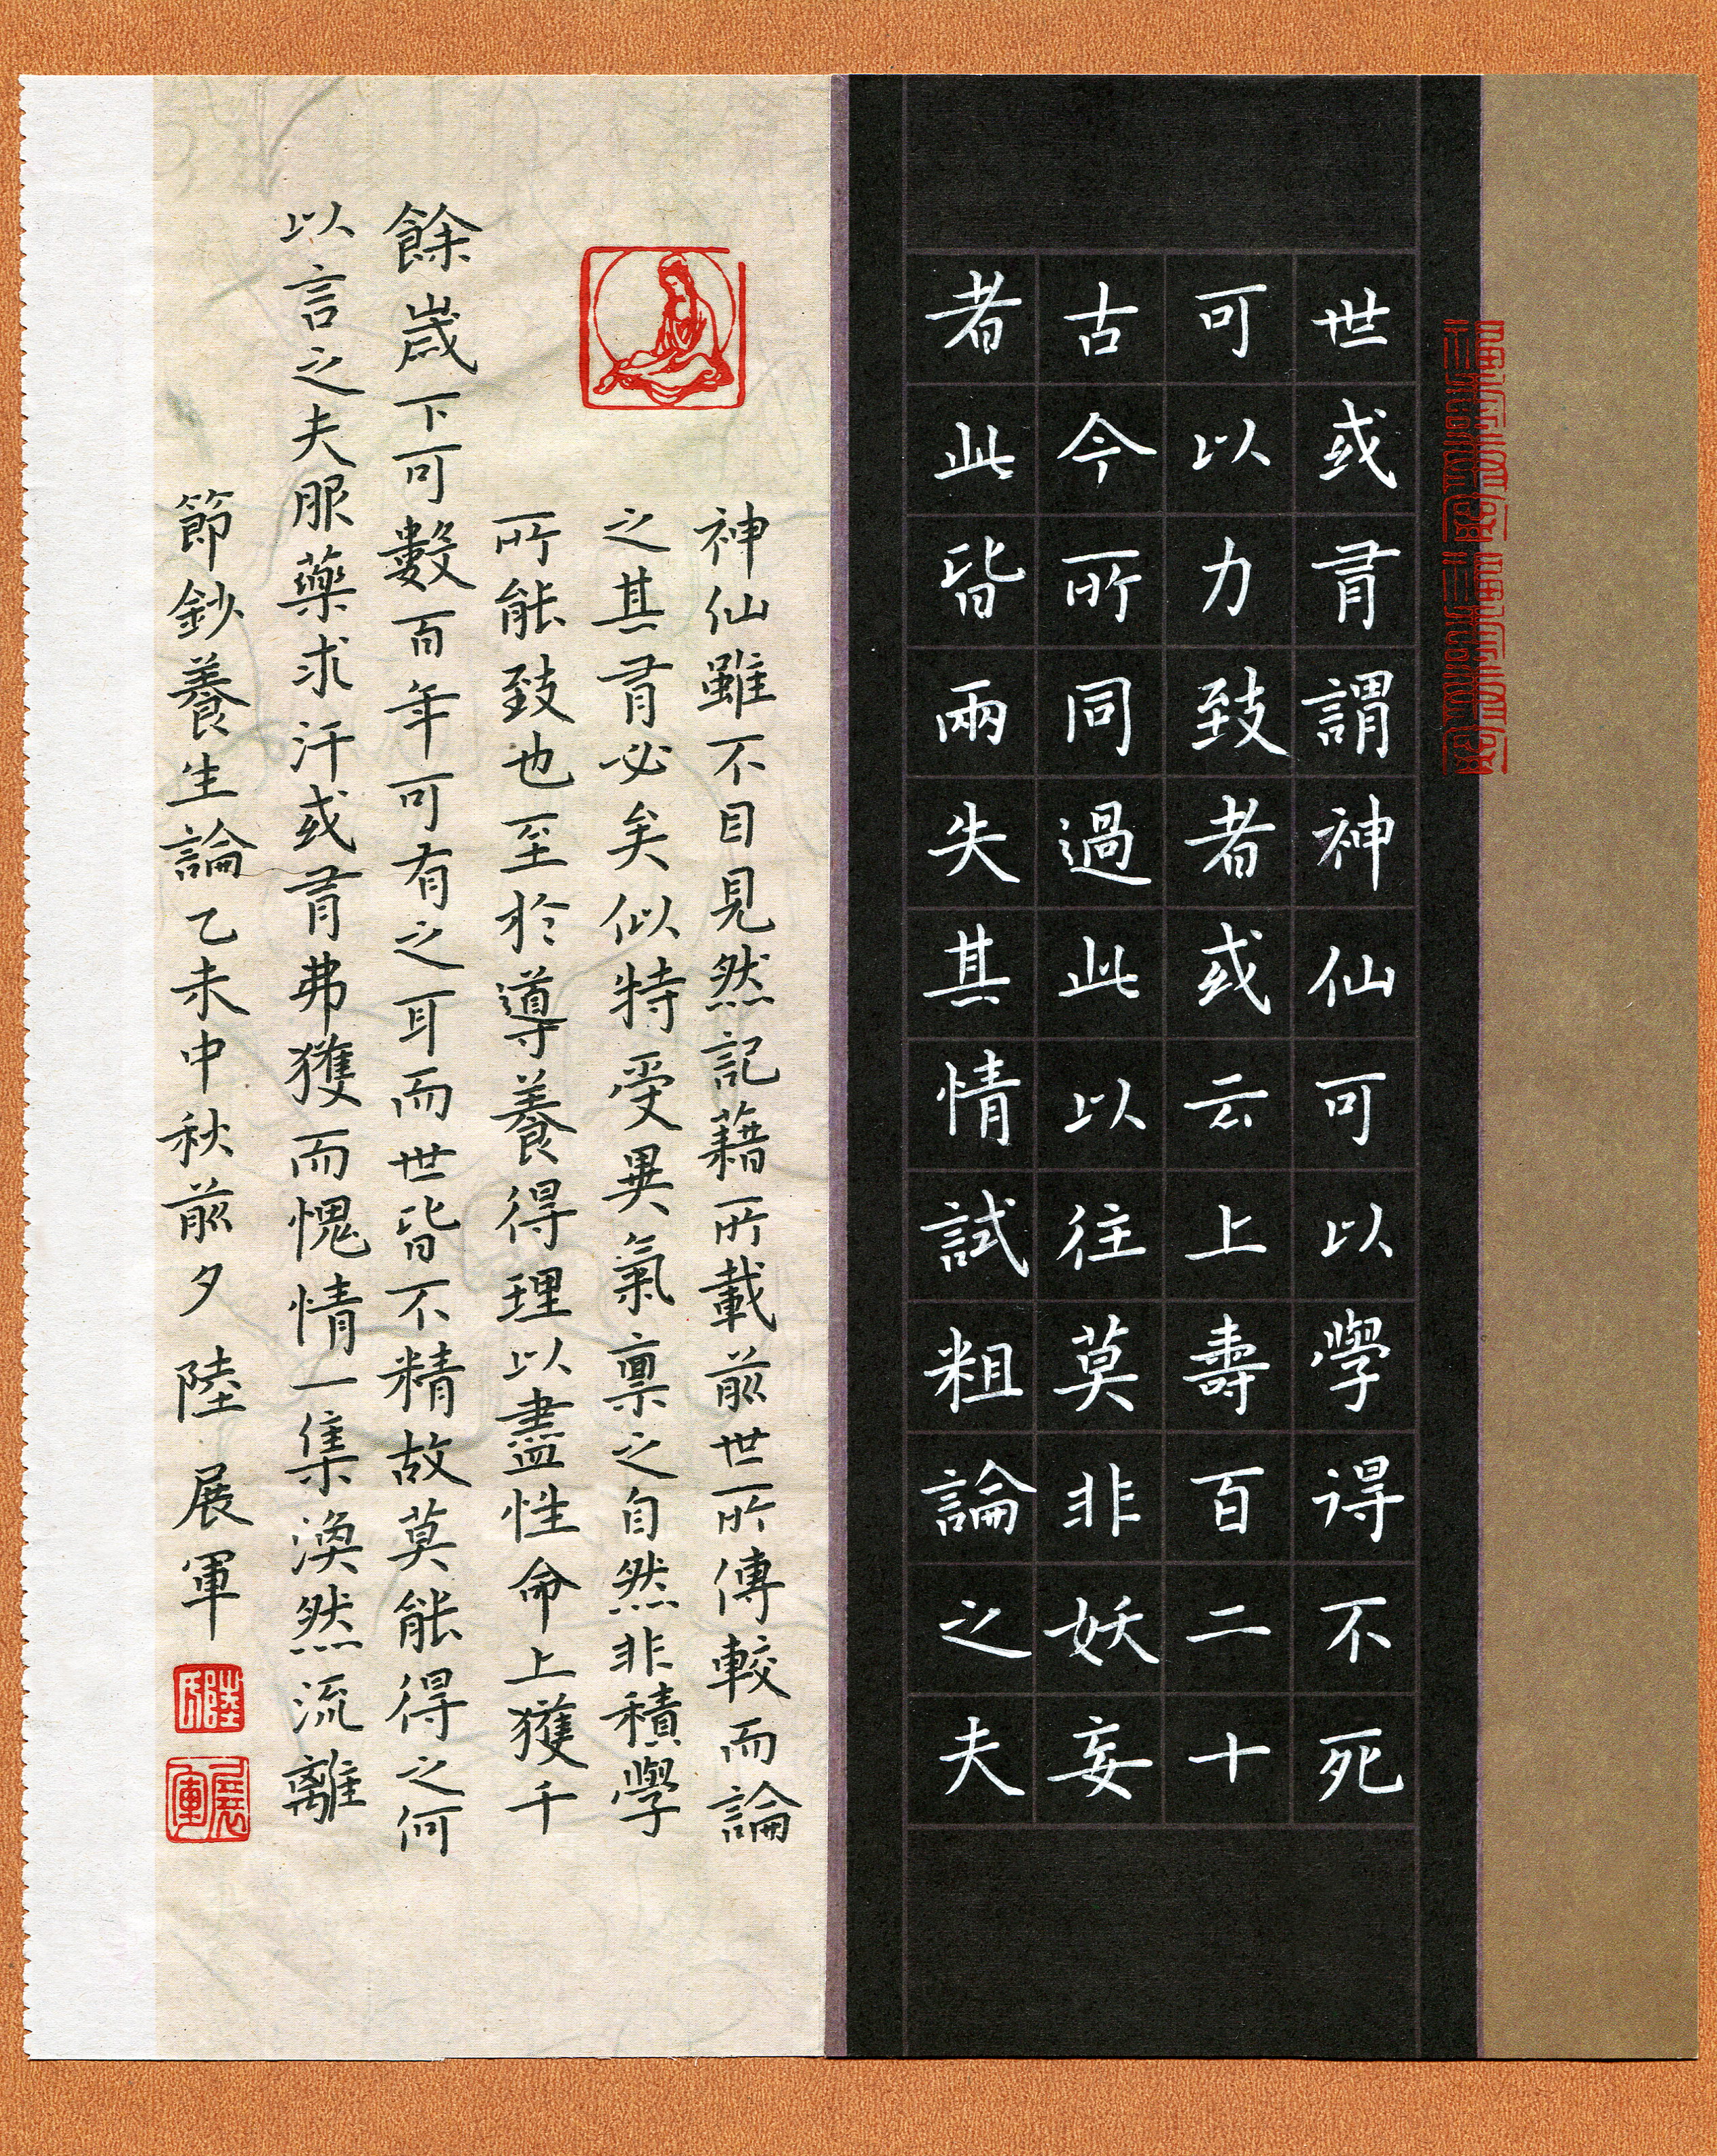 世或有謂神仙可以學得不死
可以力致者或云上壽百二十
古今所同過此以往莫非妖妄
者此皆兩失其情試粗論之夫
神仙雖不目見然記籍所載前世所傳較而論
之其有必矣似特受異氣稟之自然非積學
所能致也至於導養得理以盡性命上獲千
餘歲下可數百年可有之耳而世皆不精故莫能得之何
以言之夫服藥求汗或有弗獲而愧情一集渙然流離
節鈔養生論乙未中秋前夕陸展軍
展軍